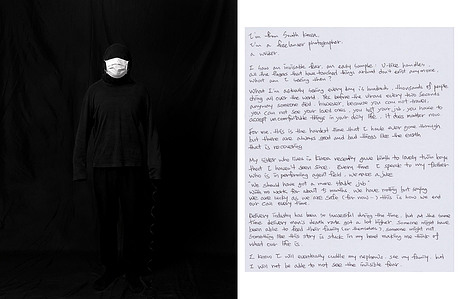 I'm from South Korea
I'm a freelancer photographer
a waiter
I have an invisible fear. an easy sample: U-bike handles.
as the fingers that have touched things around don't exist anymore.
what am I seeing then?
What I'm actually seeing every day is hundreds, thousands of people
dying all over the world. like before the virus every two seconds
anyway someone died. however, because you can not travel,
you can not see your loved ones, you lost your job, you have to
accept uncomfortable things in your daily life. it does matter now
For me, this is the hardest time that I have ever gone through
but there are always good and bad things like the earth
that is recovering
My sister who lives in Korea recently gave birth to lovely twin boys
that I haven't seen since. Every time I speak to my father
who is in performing agent field, we make a joke
'We should have got a more stable job'
With no work for about 9 months we have nothing but saying
we are lucky as we are safe (for now~) this is how we end
our call every time.
Delivery industry has been so successful during the time. but at the same
time delivery man's death rate got a lot higher. Someone might have
been able to feed their family (or themselves), someone might not
Something like this story is stuck in my head making me think of
what our life is
I know I will eventually cuddle my nephews, see my family. but
I will not be able to not see the invisible fear.